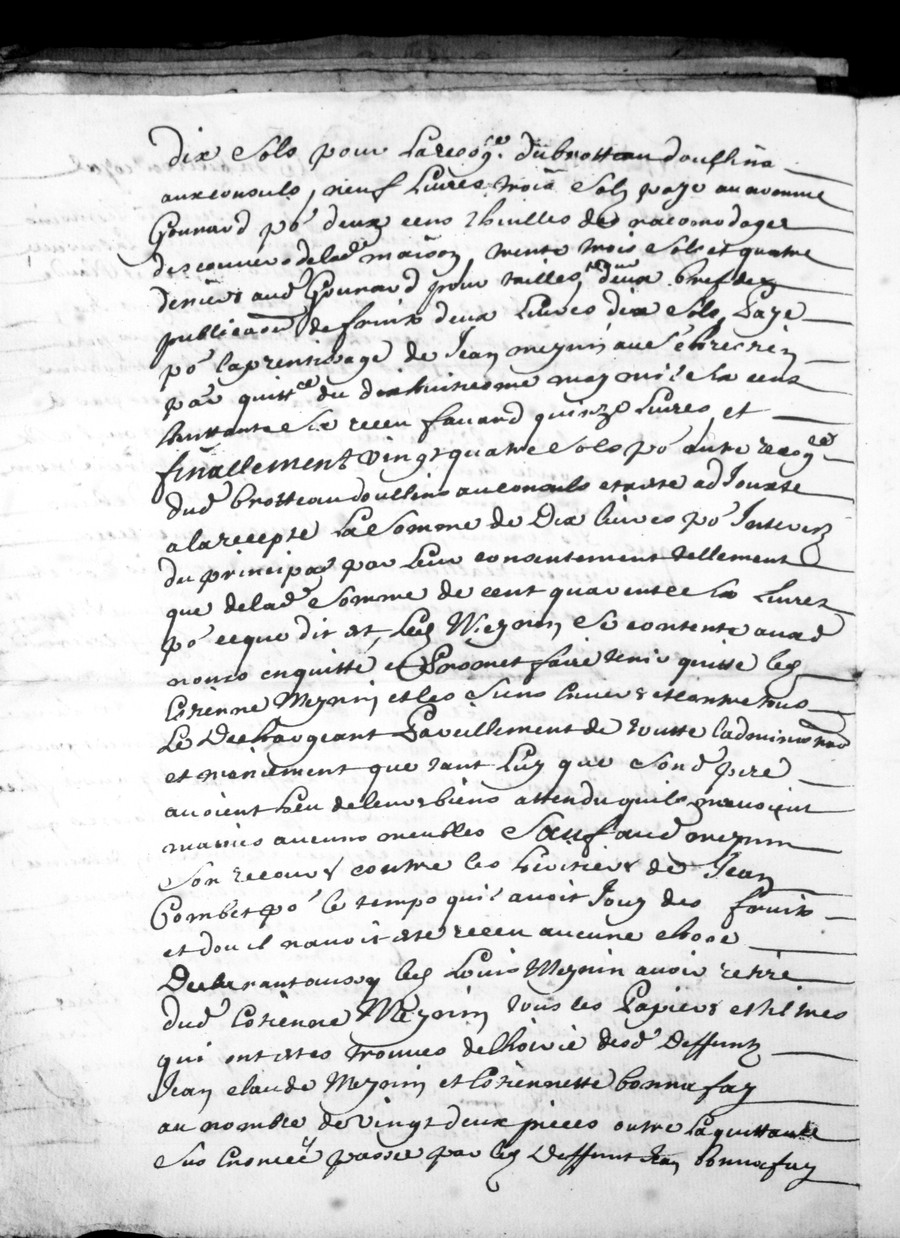 dix sols pour la recog.ce du brotteau doullins
aux consuls, neuf livres trois sols paye au nomme
Gonnard po.r deux cens thuilles de racomodages
des couverts de lad. maison, trente trois sols et quatre
deniers aud Gonnard pour tailles, deux brefs de
publicaõn de fruits deux livres dix sols, Paye
po.r laprentissage de Jean Meynin au S.r
par quitt.ce du dixhuictieme may mil six cens
huittante six receu favard quinze livres, et
finallement vingt quatre sols po.r autre recog.ce
dud brotteau doullins au consuls et reste adjouxte
a la recepte La Somme de Dix livres po.r Interestz
du principal par leur consentement tellement
que de lad Somme de cent quarente six Livres
po.r ce que dit est, Led Meynin Se contente aud
noms en quitte et Promet faire tenir quitte led
Estienne Meynin et les Siens envers et contre tous
Le Deschargeant Pareillement de toutte ladmin.on
et maniement que tant Luy que Sond pere
avoient heu de leurs biens attendu quils navoient
manies aucuns meubles Sauf aud meynin
Son recours contre les heritiers de Jean
Combet po.r le temps quil avoit Jouy des fruits
et dou il navoit este receu aucune chose
Declarant aussy led Louis Meynin avoir retire
dud Estienne Meynin tous les Papiers et tiltres
qui ont estes trouves de lhoirie desd Deffuntz
Jean claude Meynin et Estiennette bonnafay
au nombre de vingt deux pieces outre la quittance
Sus enoncée passée par led Deffunt Jean bonnafay